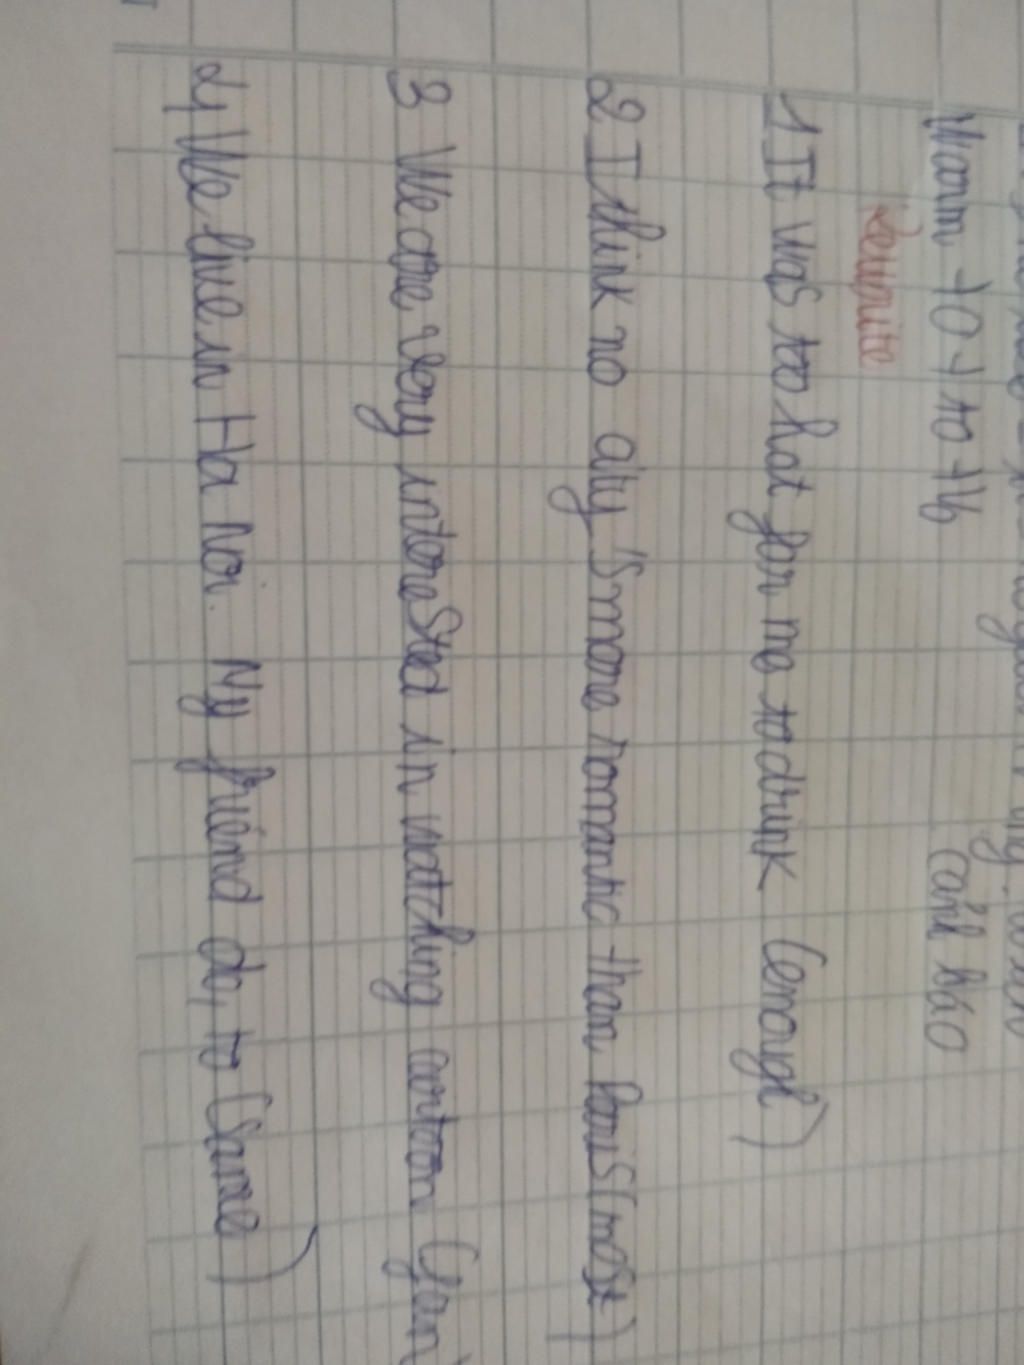 Warm +O + to + V
cảnh báo
Rewrite
1 It was too hot for me to drink (enough)
2 I think no city's more romantic than Paris (most)
3 We are very interested in watching cartoon (fan)
4, We live in Ha Noi. My friend do, to (same)